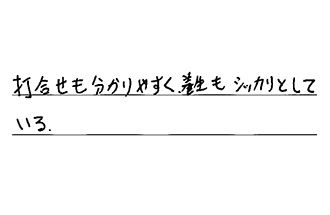 打合せも分かりやすく、養生もシッカリとして
いる.